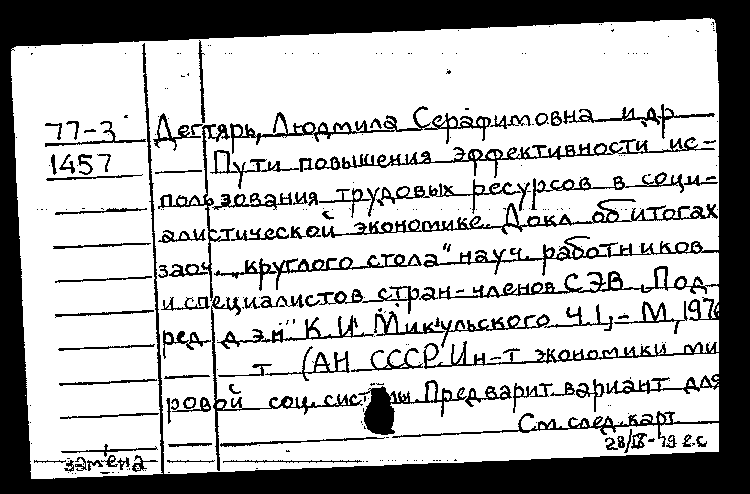 77-3 Дегтярь, Людмила Серафимовна и др
1457 Пути повышения эффективности ис-
пользования трудовых ресурсов в соци-
алистической экономике. Докл об итогах
заоч. „круглого стола" науч. работников
и специалистов стран-членов СЭВ. Под
ред д.э.н К.И. Микульского Ч.1,- М, 1976
т (АН СССР. Ин-т экономики ми
ровой соц. системы. Предварит. вариант для
См. след. карт.
замена